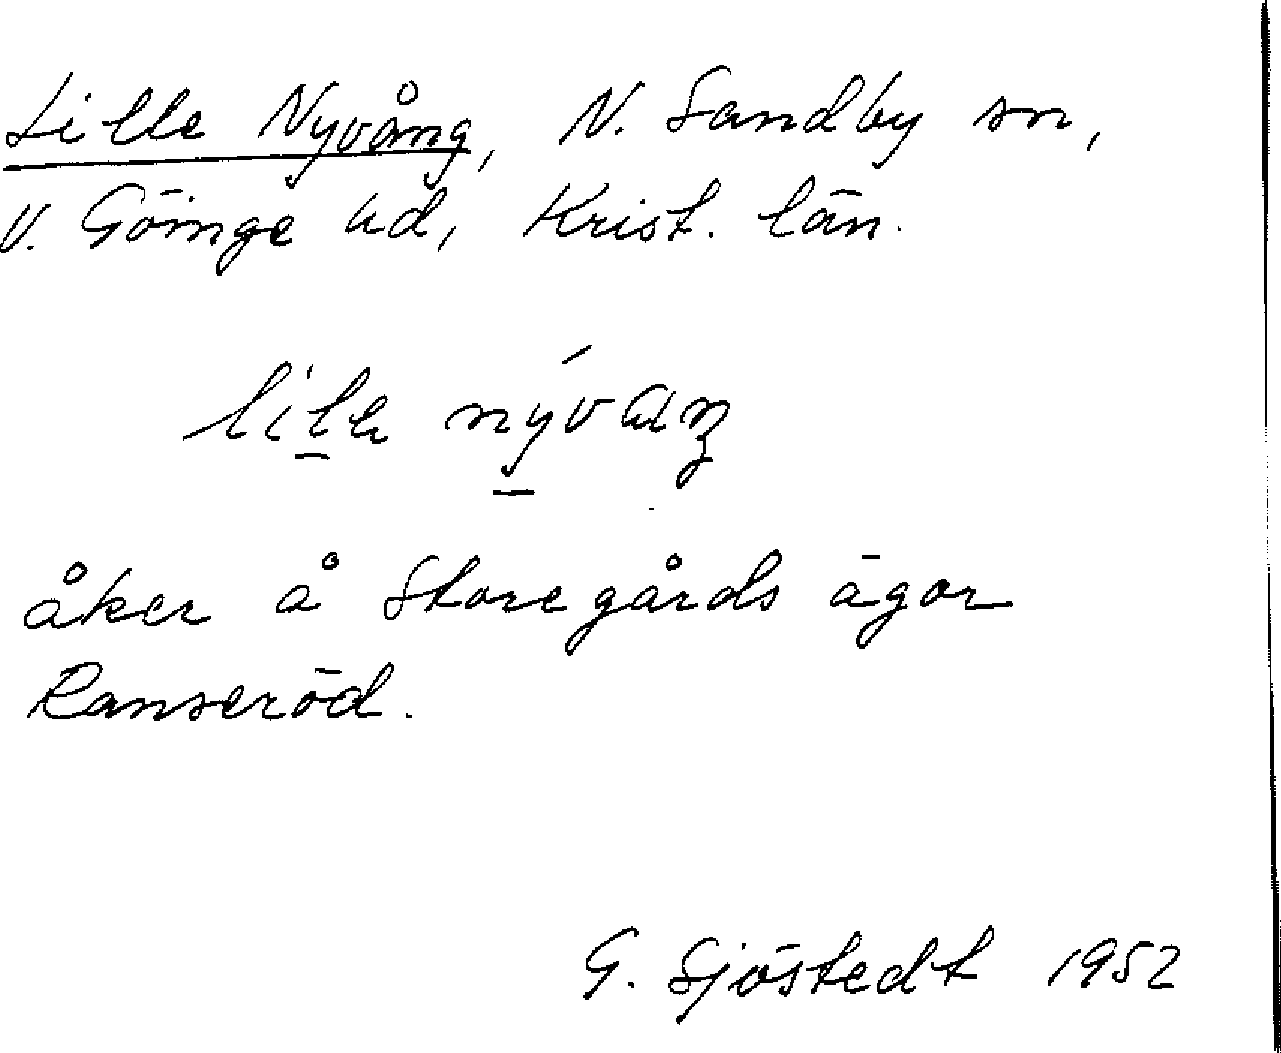 Lille Nyvång, N. Sandby sn,
V. Göinge hd, Krist. län.
åker å Storegårds ägor
Ranseröd.
G. Sjöstedt 1952